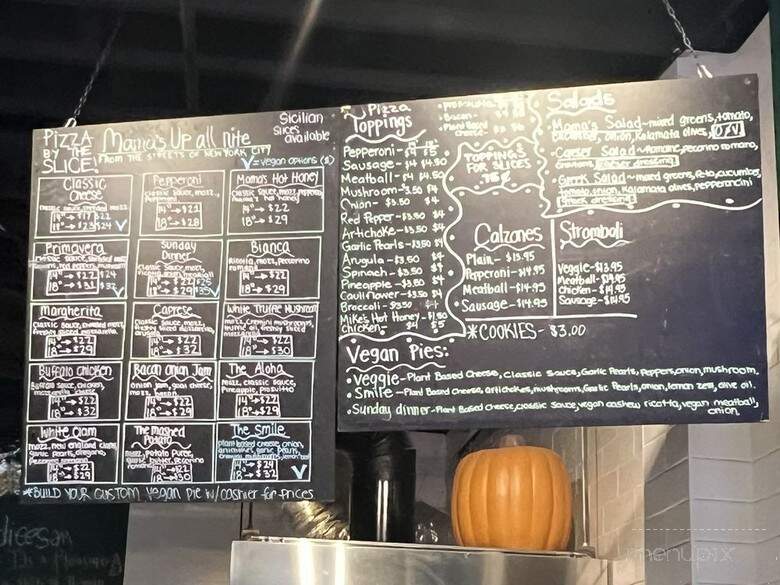 PIZZA
BY THE
SLICE!
Mama's Up all nite
FROM THE STREETS OF NEW YORK CITY
Sicilian
slices
available
V=vegan options ($)
Classic
Cheese
14"→$17 $22
18"→$23 $24 V
Pepperoni
14"→$22
18"→$28
Mama's Hot Honey
14"→$22
18"→$29
Primavera
14"→$22 $24
18"→$31
Sunday
Dinner
14"→$22 $25
18"→$29 $35 V
Bianca
Ricotta, mozz, pecorino
romano
14"→$22
18"→$29
Margherita
classic sauce, shredded mozz,
freshly sliced mozzarella
14"→$22
18"→$29
Caprese
14"→$22
18"→$32
White Truffle Mushroom
mozz, cremini mushrooms,
truffle oil, freshly sliced
14"→$22
18"→$30
Buffalo chicken
Buffalo sauce, chicken,
14"→$22
18"→$32
Bacon Onion Jam
onion jam, goat cheese,
mozz, bacon
14"→$22
18"→$29
The Aloha
mozz, classic sauce,
pineapple, prosciutto
14"→$22
18"→$29
White Clam
mozz, new england clams,
garlic pearls, oregano,
pecorino romano
14"→$22
18"→$29
The Mashed
Potato
mozz, potato puree,
garlic butter, pecorino
romano
14"→$22
18"→$30
The Smile
plant based cheese, onion,
artichokes, garlic pearls,
14"→$24
18"→$32 V
*BUILD YOUR CUSTOM vegan pie w/cashier for prices
Pizza
Toppings
• Prosciutto
• Bacon-
• Plant Based
cheese-
TOPPINGS
FOR SLICES
Pepperoni-
Sausage- $4 $4.50
Meatball- $4 $4.50
Mushroom-3.50 $4
Onion- $3.50 $4
Red Pepper-$3.50 $4
Artichoke-$3.50 $4
Garlic Pearls-$3.50 $4
Arugula-$3.50 $4
Spinach-$3.50 $4
Pineapple-$3.50 $4
Cauliflower-$3.50 $4
Broccoli-$3.50 $4
Mike's Hot Honey-$1.50
Chicken- $4 $5
Salads
• Mama's Salad~mixed greens, tomato,
cucumber, onion, Kalamata olives,
• Caesar Salad~romaine, pecorino romano,
croutons, caesar dressing
• Greek Salad~mixed greens, feta, cucumber,
tomato, onion, Kalamata olives, pepperoncini
greek dressing
Calzones
Plain- $13.95
Pepperoni-$14.95
Meatball-$14.95
Sausage-$14.95
Stromboli
Veggie-$13.95
Meatball-$14.95
Chicken-$14.95
Sausage-$14.95
*COOKIES- $3.00
Vegan Pies:
• Veggie-Plant Based Cheese, Classic Sauce, Garlic Pearls, Peppers, onion, mushroom.
• Smile-Plant Based Cheese, artichokes, mushroom, Garlic Pearls, onion, lemon zest, olive oil.
• Sunday dinner-Plant Based Cheese, classic Sauce, vegan cashew ricotta, vegan meatball,
onion.
menupix